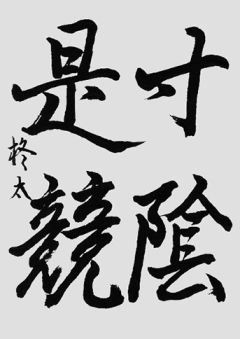 寸陰
是競
柊太